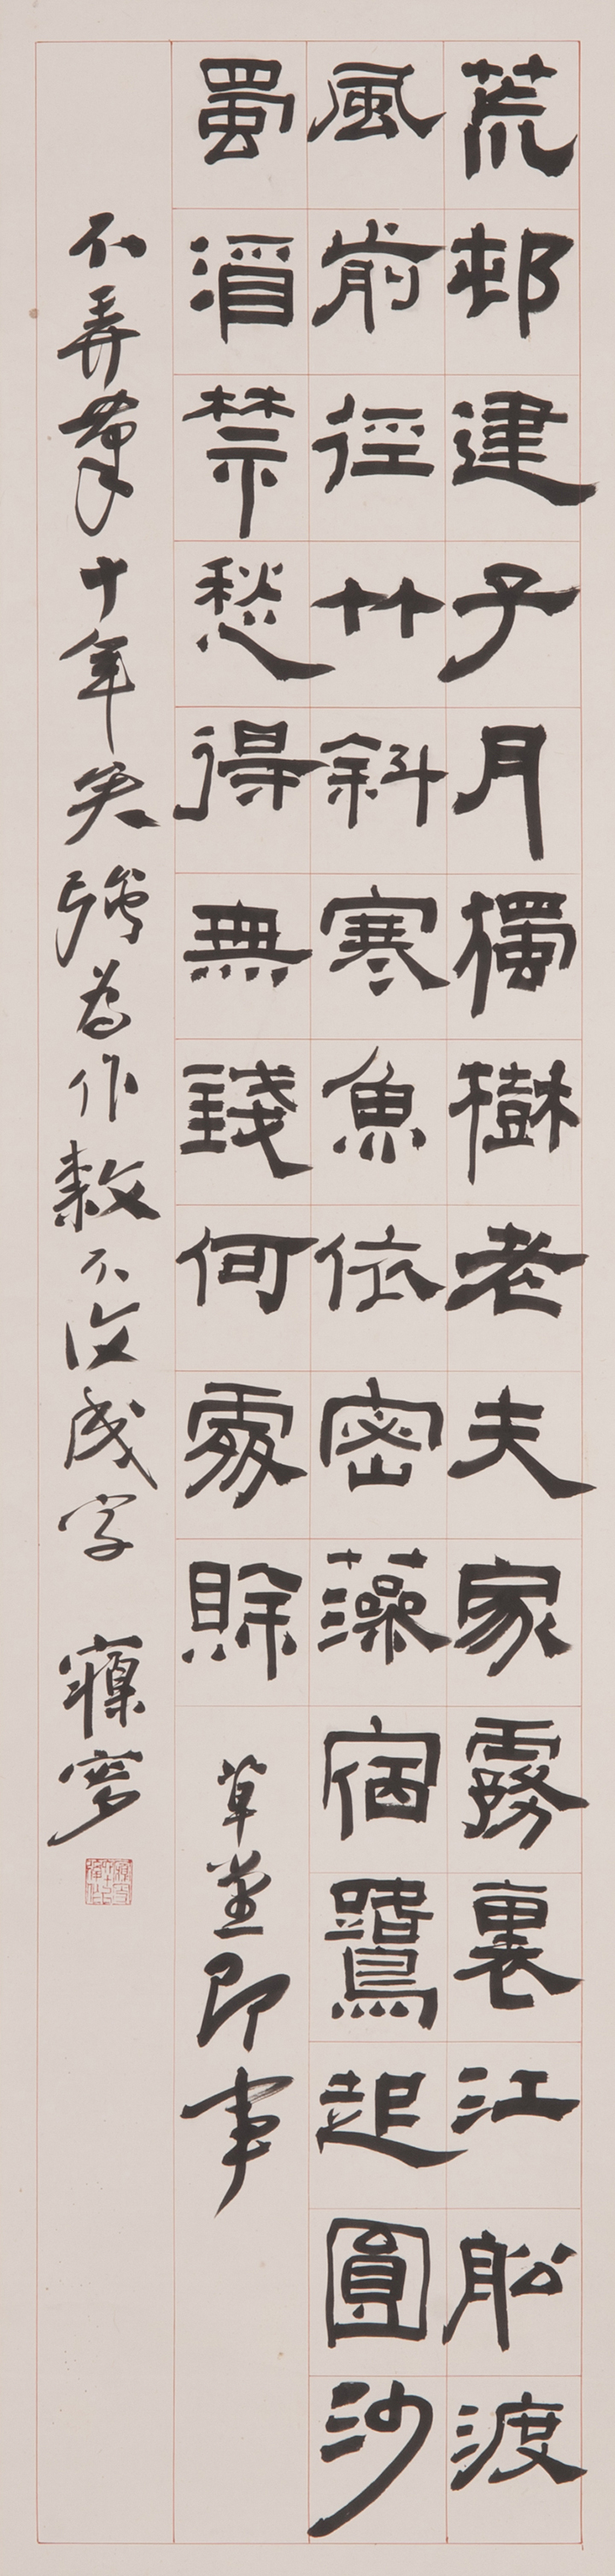 荒邨建子月獨樹老夫家霧裏江舩渡
風前徑竹斜寒魚依密藻宿鷺起圓沙
蜀酒禁愁得無錢何處賒 草堂即事
不弄筆十年矣強為作隸不復成字 寱叟